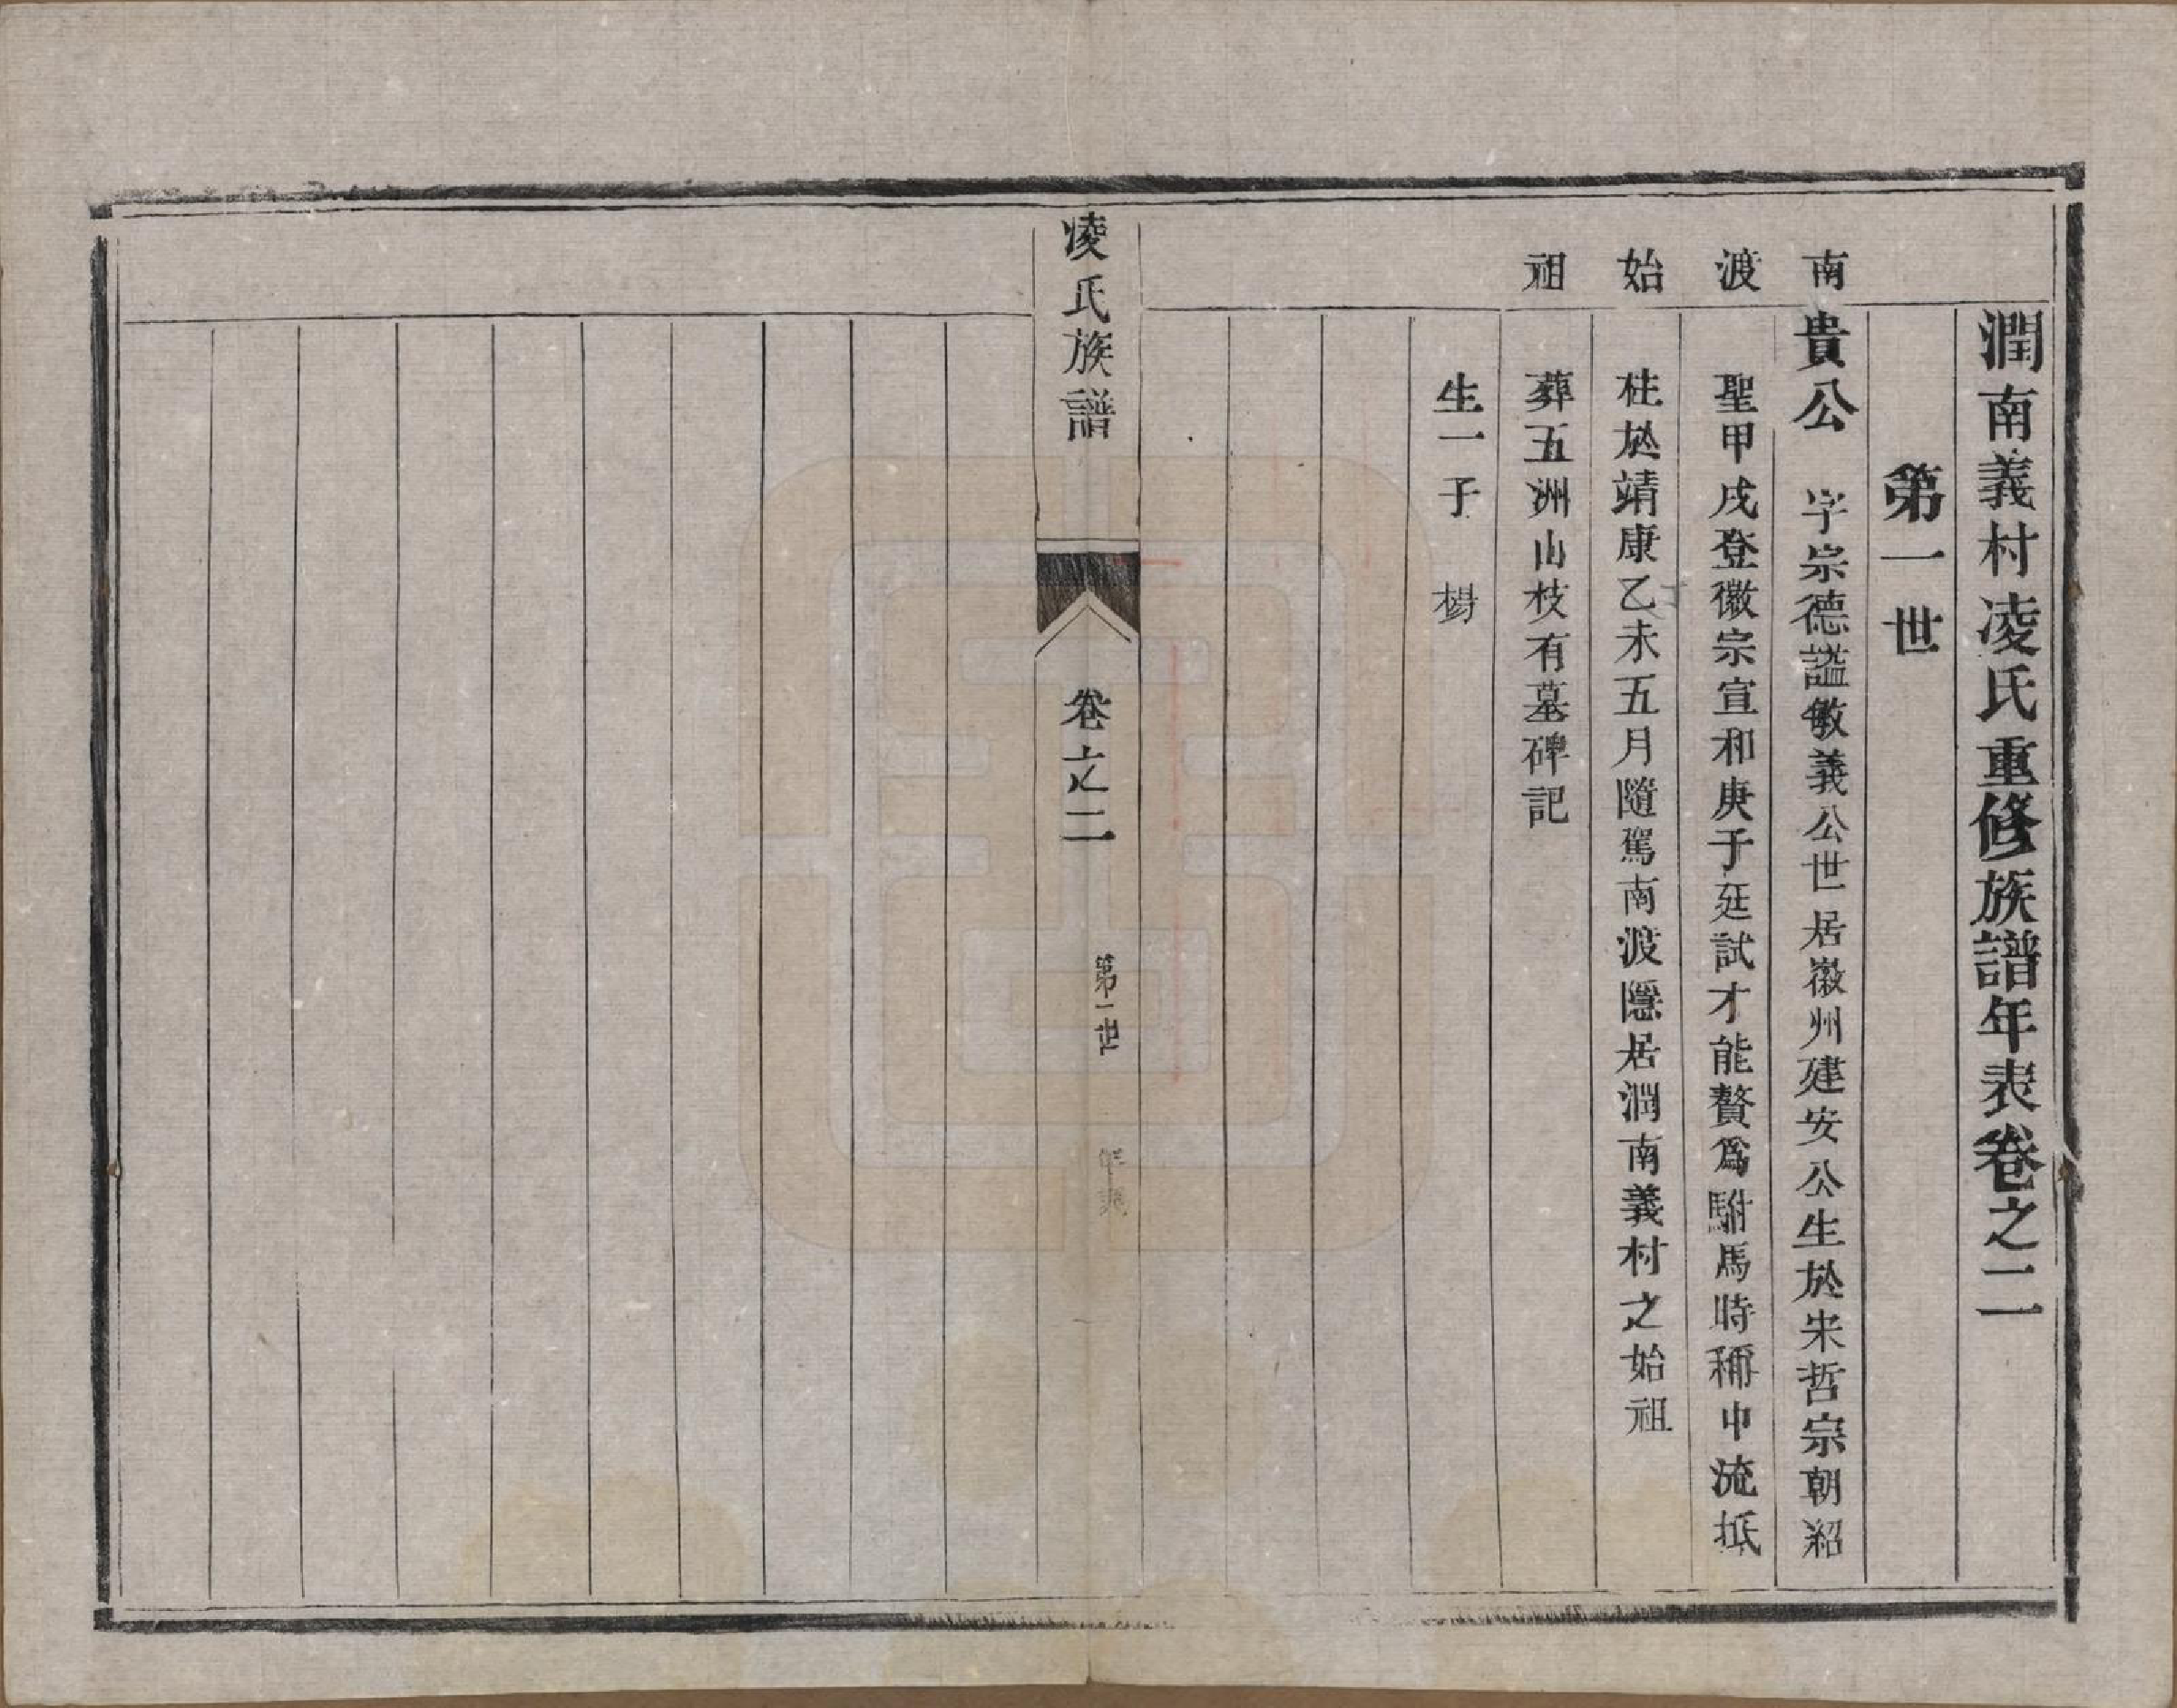 潤南義村凌氏重修族譜年表卷之二
第一世
南渡始祖
貴公 字宗德諡敏義公世居徽州建安公公生於宋哲宗朝紹
聖甲戌登徽宗宣和庚子廷試才能贅爲駙馬時稱中流抵
柱於靖康乙未五月隨駕南渡隱居潤南義村之始祖
葬五洲山枝有墓碑記
生一子 楊
凌氏族譜 卷之二 第一世 年表